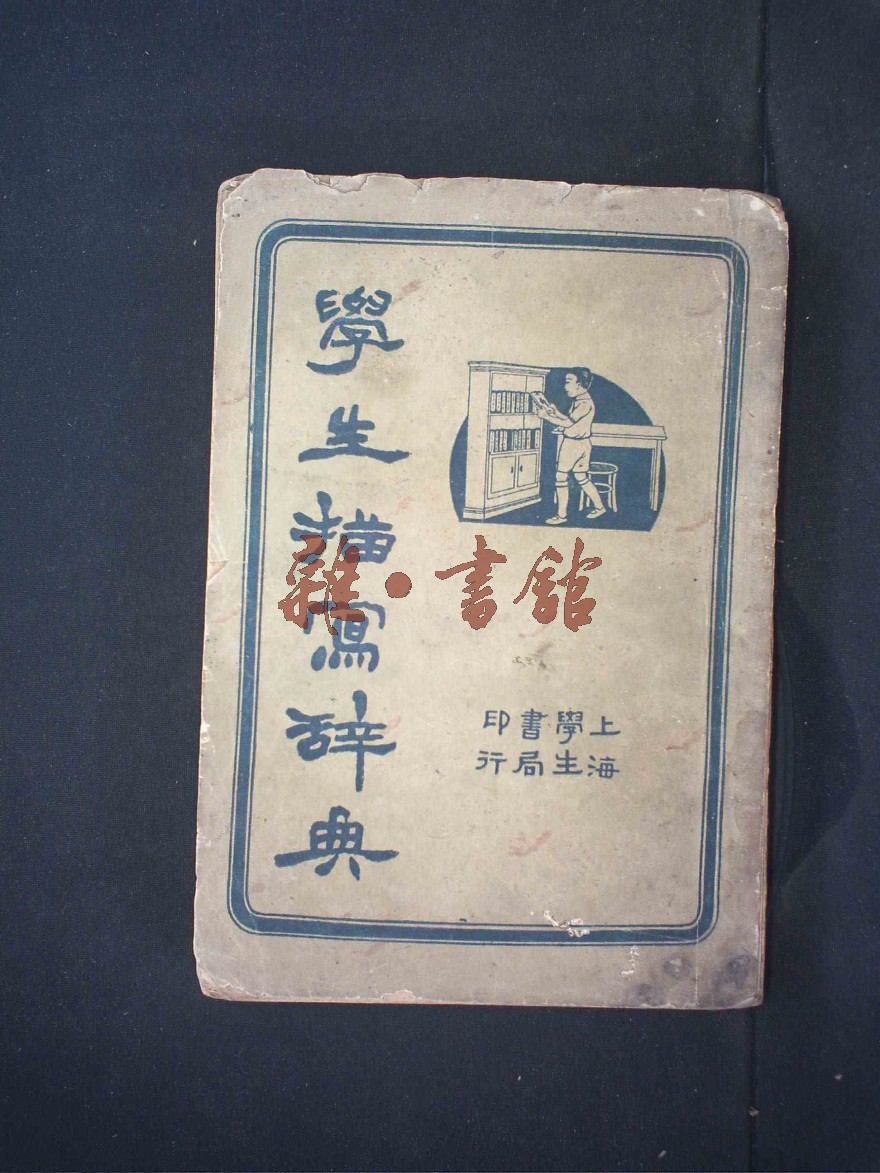 學生描寫辭典
上海學生書局印行
雜·書館